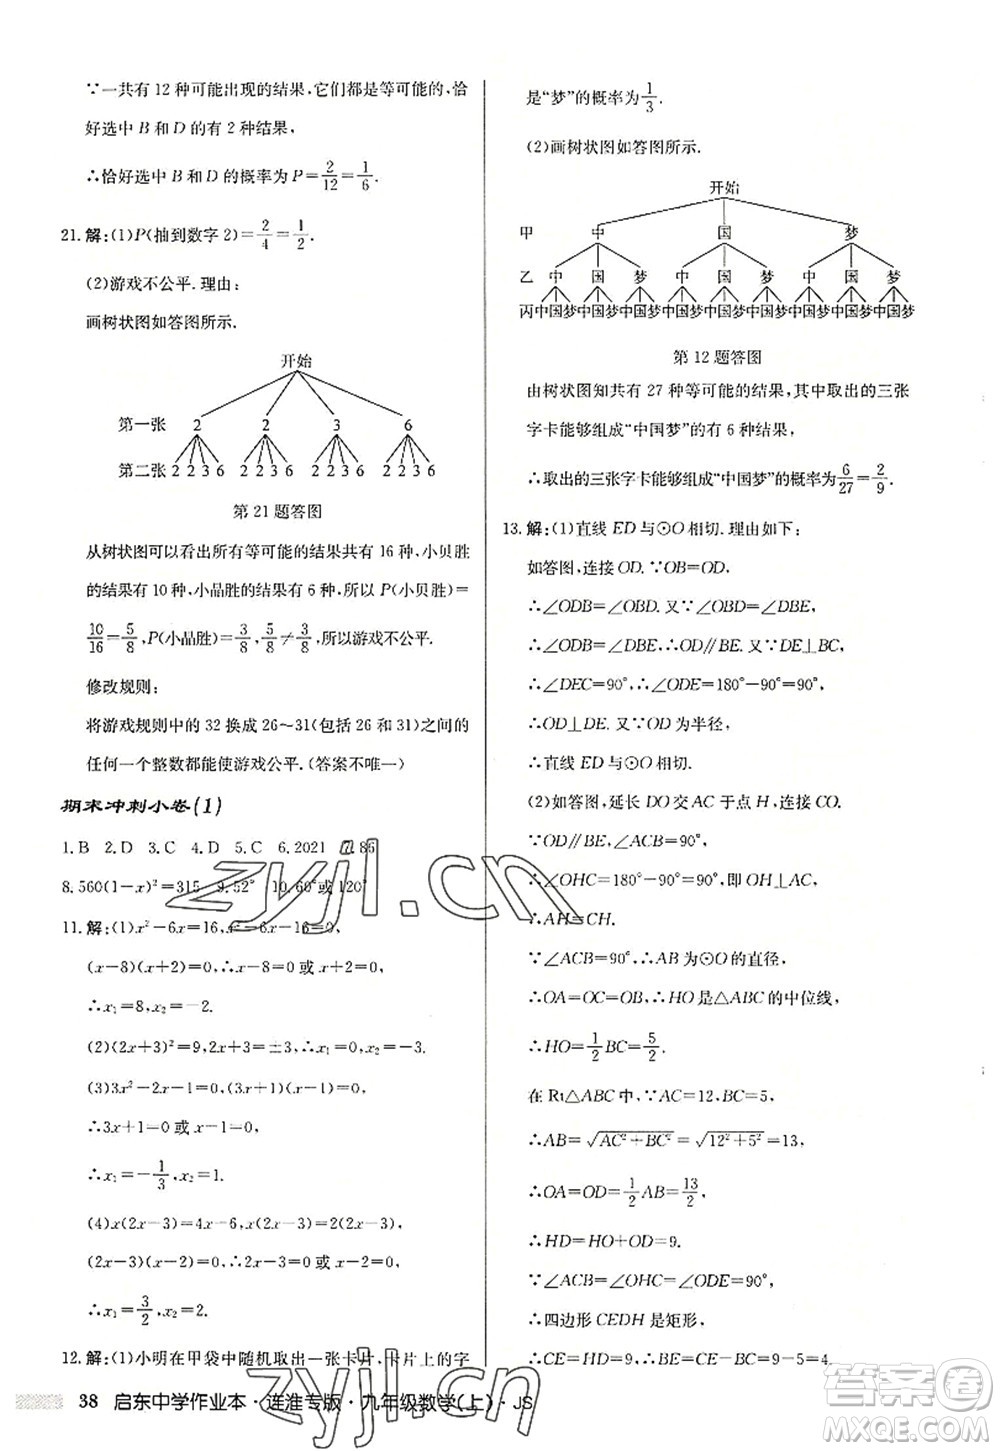 ∵一共有 12 种可能出现的结果,它们都是等可能的,恰
好选中 B 和 D 的有 2 种结果,
∴恰好选中 B 和 D 的概率为 P=2/12=1/6.
21.解:(1)P(抽到数字 2)=2/4=1/2.
(2)游戏不公平.理由:
画树状图如答图所示.
开始
第一张 2 2 3 6
第二张 2 2 3 6 2 2 3 6 2 2 3 6 2 2 3 6
第 21 题答图
从树状图可以看出所有等可能的结果共有 16 种,小贝胜
的结果有 10 种,小品胜的结果有 6 种,P(小贝胜)=
10/16=5/8,P(小品胜)=3/8,5/8≠3/8,所以游戏不公平.
修改规则:
将游戏规则中的 32 换成 26~31(包括 26 和 31)之间的
任何一个整数都能使游戏公平.(答案不唯一)
期末冲刺小卷(1)
1.B 2.D 3.C 4.D 5.C 6.2021 7.86
8.560(1-x)²=315 9.52° 10.60°或120°
11.解:(1)x²-6x=16,x²-6x-16=0,
(x-8)(x+2)=0,∴x-8=0 或 x+2=0,
∴x₁=8,x₂=-2.
(2)(2x+3)²=9,∴2x+3=±3,∴x₁=0,x₂=-3.
(3)3x²-2x-1=0,∴(3x+1)(x-1)=0,
∴3x+1=0 或 x-1=0,
∴x₁=-1/3,x₂=1.
(4)x(2x-3)=4x-6,∴x(2x-3)-2(2x-3)=0,
(2x-3)(x-2)=0,∴2x-3=0 或 x-2=0,
∴x₁=3/2,x₂=2.
12.解:(1)小明在甲袋中随机取出一张卡片,卡片上的字
是“梦”的概率为1/3.
(2)画树状图如答图所示.
开始
甲 中 国 梦
乙 中 国 梦 中 国 梦 中 国 梦
丙 中国梦 中国梦 中国梦 中国梦 中国梦 中国梦 中国梦 中国梦 中国梦
第 12 题答图
由树状图知共有 27 种等可能的结果,其中取出的三张
字卡能够组成“中国梦”的有 6 种结果,
∴取出的三张字卡能够组成“中国梦”的概率为6/27=2/9.
13.解:(1)直线 ED 与⊙O 相切.理由如下:
如答图,连接 OD.∵OB=OD,
∴∠ODB=∠OBD.又∵∠OBD=∠DBE,
∴∠ODB=∠DBE,∴OD∥BE.又∵DE⊥BC,
∴∠DEC=90°,∴∠ODE=180°-90°=90°,
∴OD⊥DE.又∵OD 为半径,
∴直线 ED 与⊙O 相切.
(2)如答图,延长 DO 交 AC 于点 H,连接 CO.
∵OD∥BE,∠ACB=90°,
∴∠OHC=180°-90°=90°,即 OH⊥AC,
∴AH=CH.
∵∠ACB=90°,∴AB 为⊙O 的直径,
∴OA=OC=OB,∴HO 是△ABC 的中位线,
∴HO=1/2BC=5/2.
在 Rt△ABC 中,∵AC=12,BC=5,
∴AB=√(AC²+BC²)=√(12²+5²)=13,
∴OA=OD=1/2AB=13/2,
∴HD=HO+OD=9.
∵∠ACB=∠CED=∠ODE=90°,
∴四边形 CEDH 是矩形,
∴CE=HD=9,∴BE=CE-BC=9-5=4.
38 启东中学作业本·连淮专版·九年级数学(上)·JS
zyjl.cn
zyjl.cn